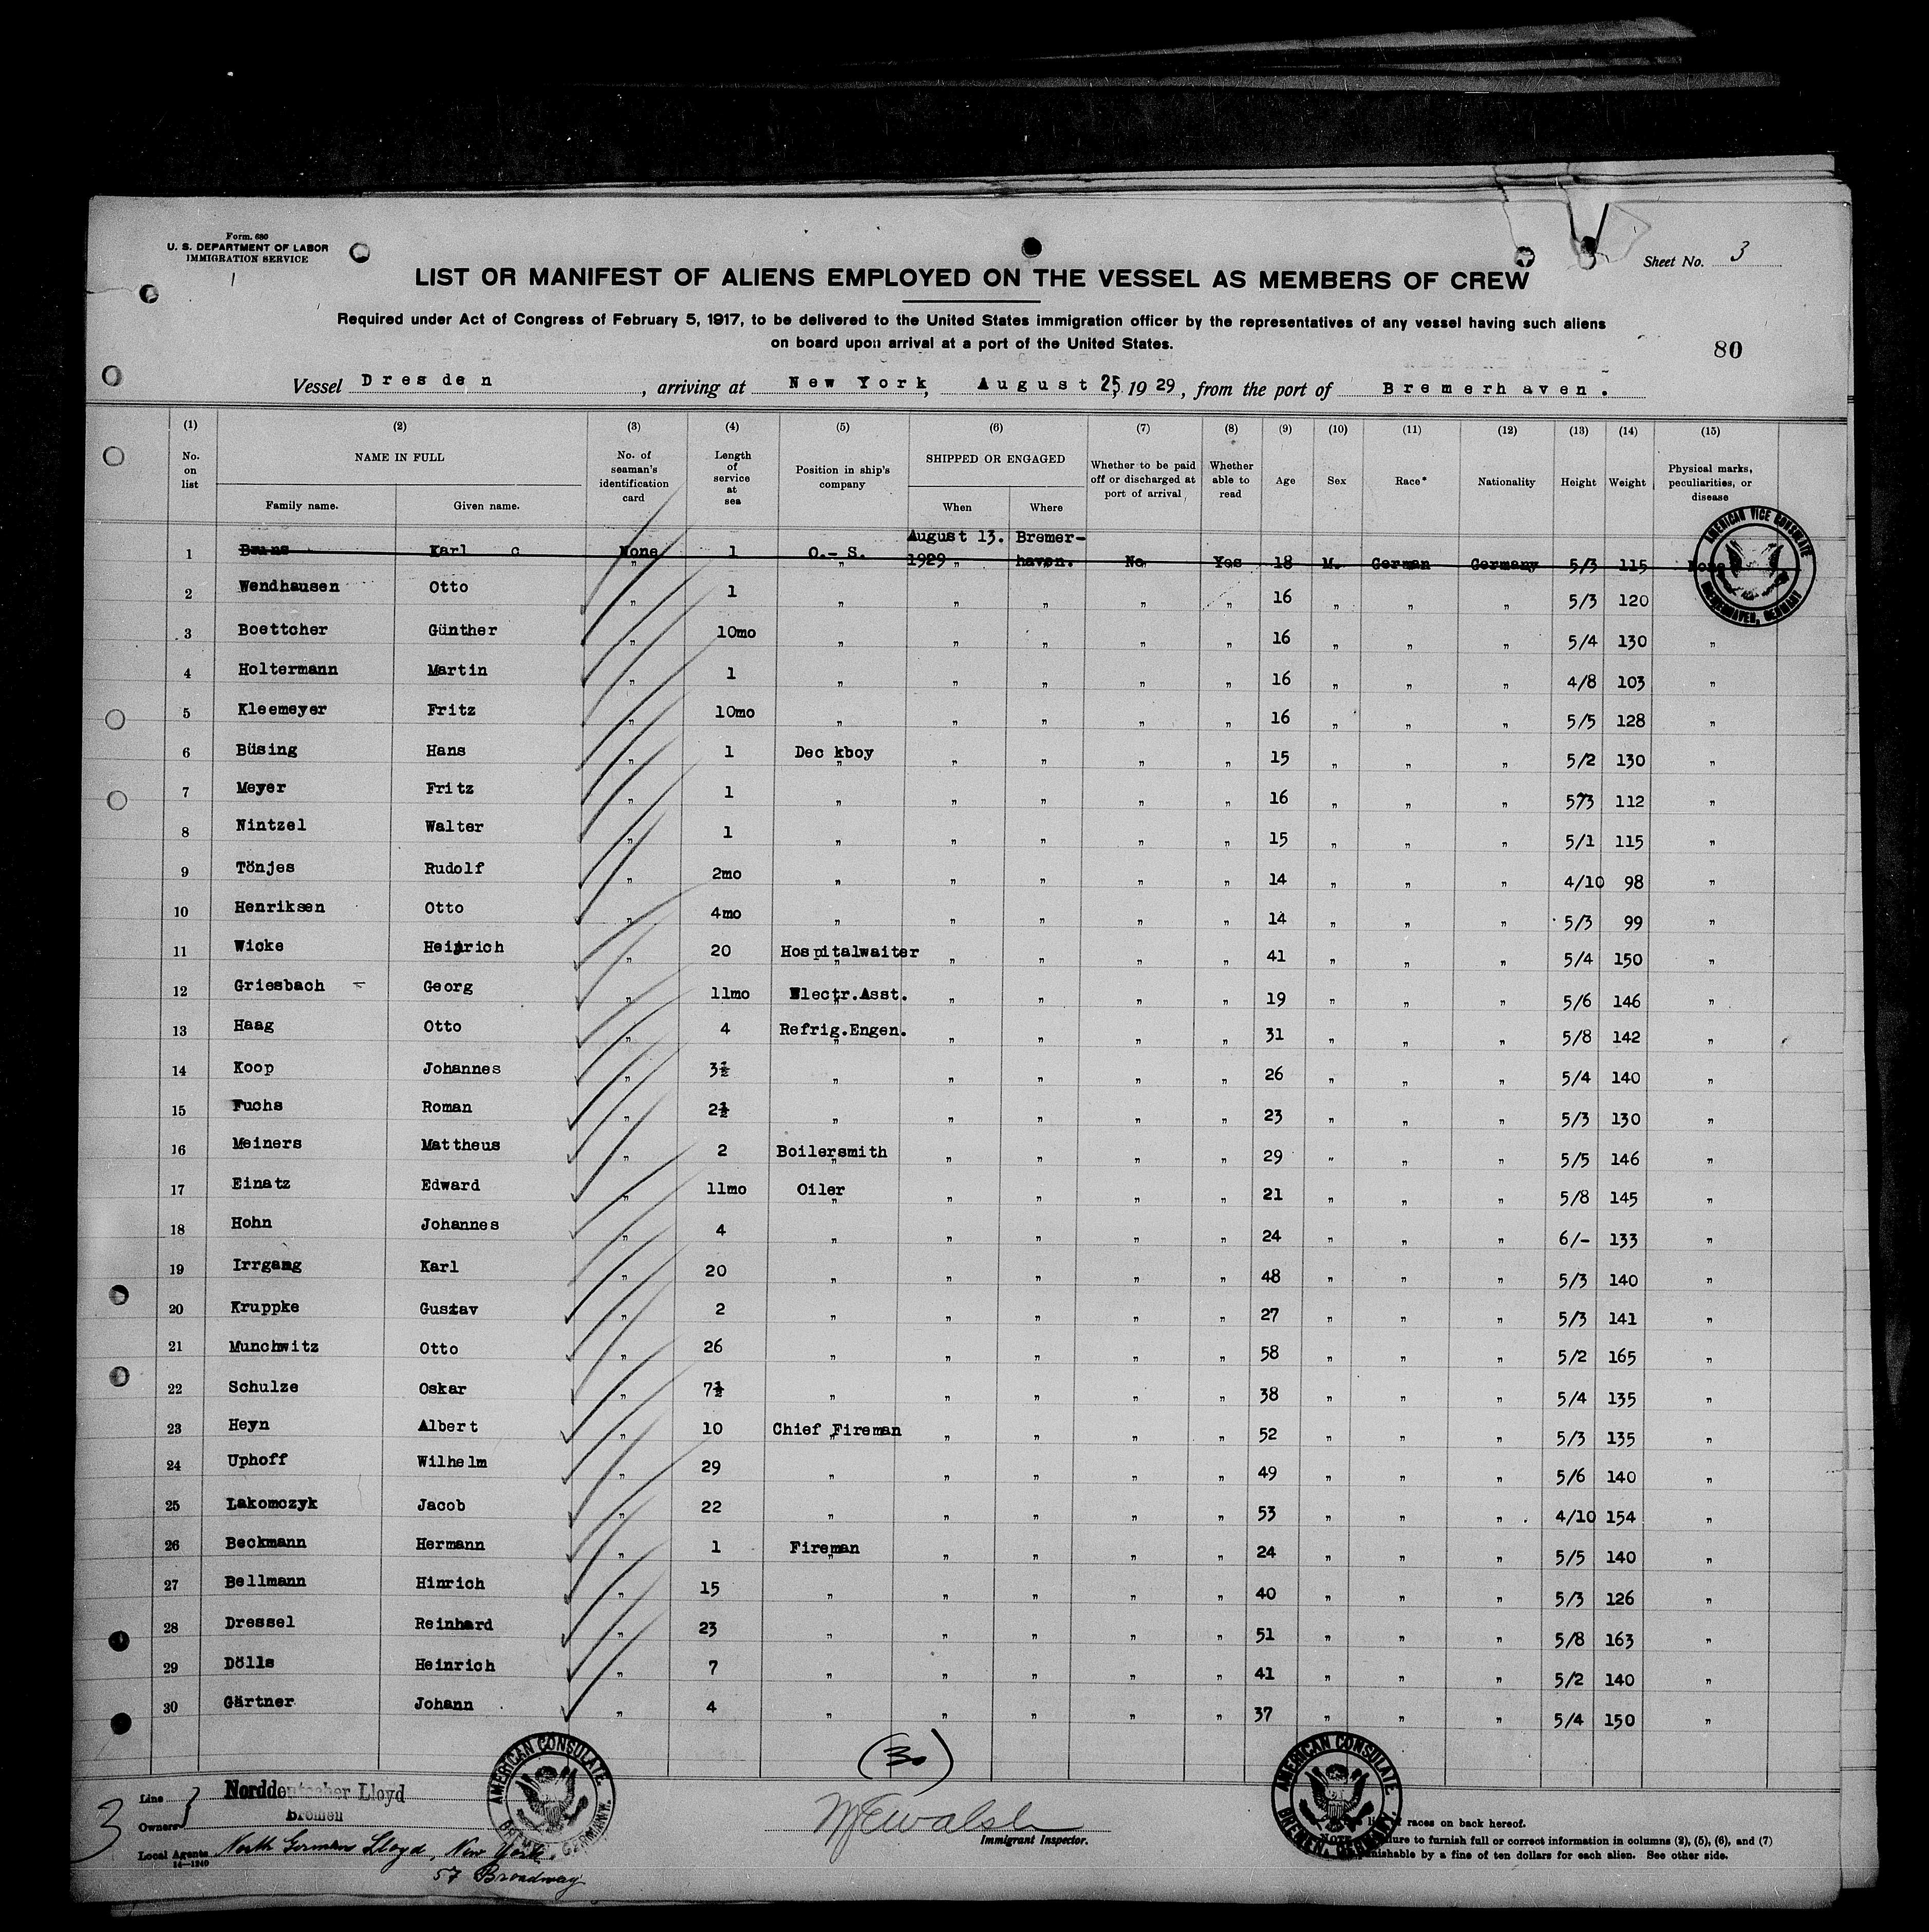 Form. 680
U. S. DEPARTMENT OF LABOR
IMMIGRATION SERVICE
Sheet No. 3
LIST OR MANIFEST OF ALIENS EMPLOYED ON THE VESSEL AS MEMBERS OF CREW
Required under Act of Congress of February 5, 1917, to be delivered to the United States immigration officer by the representatives of any vessel having such aliens
on board upon arrival at a port of the United States.
80
Vessel Dresden, arriving at New York, August 25, 1929, from the port of Bremerhaven.
(1) (2) (3) (4) (5) (6) (7) (8) (9) (10) (11) (12) (13) (14) (15)
No. on list NAME IN FULL Family name. Given name. No. of seaman's identification card Length of service at sea Position in ship's company SHIPPED OR ENGAGED When Where Whether to be paid off or discharged at port of arrival Whether able to read Age Sex Race* Nationality Height Weight Physical marks, peculiarities, or disease
1 Bruns Karl c None 1 O.- S. August 13. 1929 Bremer-haven. No Yes 18 M. German Germany 5/3 115 None
2 Wendhausen Otto " 1 " " " " " 16 " " " 5/3 120
3 Boettcher Günther " 10mo " " " " " 16 " " " 5/4 130 "
4 Holtermann Martin " 1 " " " " " 16 " " " 4/8 103 "
5 Kleemeyer Fritz " 10mo " " " " " 16 " " " 5/5 128 "
6 Büsing Hans " 1 Dec kboy " " " " 15 " " " 5/2 130 "
7 Meyer Fritz " 1 " " " " " 16 " " " 573 112 "
8 Nintzel Walter " 1 " " " " " 15 " " " 5/1 115 "
9 Tönjes Rudolf " 2mo " " " " " 14 " " " 4/10 98 "
10 Henriksen Otto " 4mo " " " " " 14 " " " 5/3 99 "
11 Wicke Heinrich " 20 Hospitalwaiter " " " " 41 " " " 5/4 150 "
12 Griesbach Georg " 11mo Electr.Asst. " " " " 19 " " " 5/6 146 "
13 Haag Otto " 4 Refrig.Engen. " " " " 31 " " " 5/8 142 "
14 Koop Johannes " 3½ " " " " " 26 " " " 5/4 140 "
15 Fuchs Roman " 2½ " " " " " 23 " " " 5/3 130 "
16 Meiners Mattheus " 2 Boilersmith " " " " 29 " " " 5/5 146 "
17 Einatz Edward " 11mo Oiler " " " " 21 " " " 5/8 145 "
18 Hohn Johannes " 4 " " " " " 24 " " " 6/- 133 "
19 Irrgang Karl " 20 " " " " " 48 " " " 5/3 140 "
20 Kruppke Gustav " 2 " " " " " 27 " " " 5/3 141 "
21 Munchwitz Otto " 26 " " " " " 58 " " " 5/2 165 "
22 Schulze Oskar " 7½ " " " " " 38 " " " 5/4 135 "
23 Heyn Albert " 10 Chief Fireman " " " " 52 " " " 5/3 135 "
24 Uphoff Wilhelm " 29 " " " " " 49 " " " 5/6 140 "
25 Lakomczyk Jacob " 22 " " " " " 53 " " " 4/10 154 "
26 Beckmann Hermann " 1 Fireman " " " " 24 " " " 5/5 140 "
27 Bellmann Hinrich " 15 " " " " " 40 " " " 5/3 126 "
28 Dressel Reinhard " 23 " " " " " 51 " " " 5/8 163 "
29 Dölls Heinrich " 7 " " " " " 41 " " " 5/2 140 "
30 Gärtner Johann " 4 " " " " " 37 " " " 5/4 150 "
AMERICAN VICE CONSULATE BREMERHAVEN, GERMANY
(30)
AMERICAN CONSULATE BREMEN, GERMANY.
AMERICAN CONSULATE BREMEN, GERMANY.
3
Line Norddeutscher Lloyd
Owners Bremen
Local Agents North German Lloyd, New York
14-1240
57 Broadway
McWalsh
Immigrant Inspector.
races on back hereof.
failure to furnish full or correct information in columns (2), (5), (6), and (7)
punishable by a fine of ten dollars for each alien. See other side.